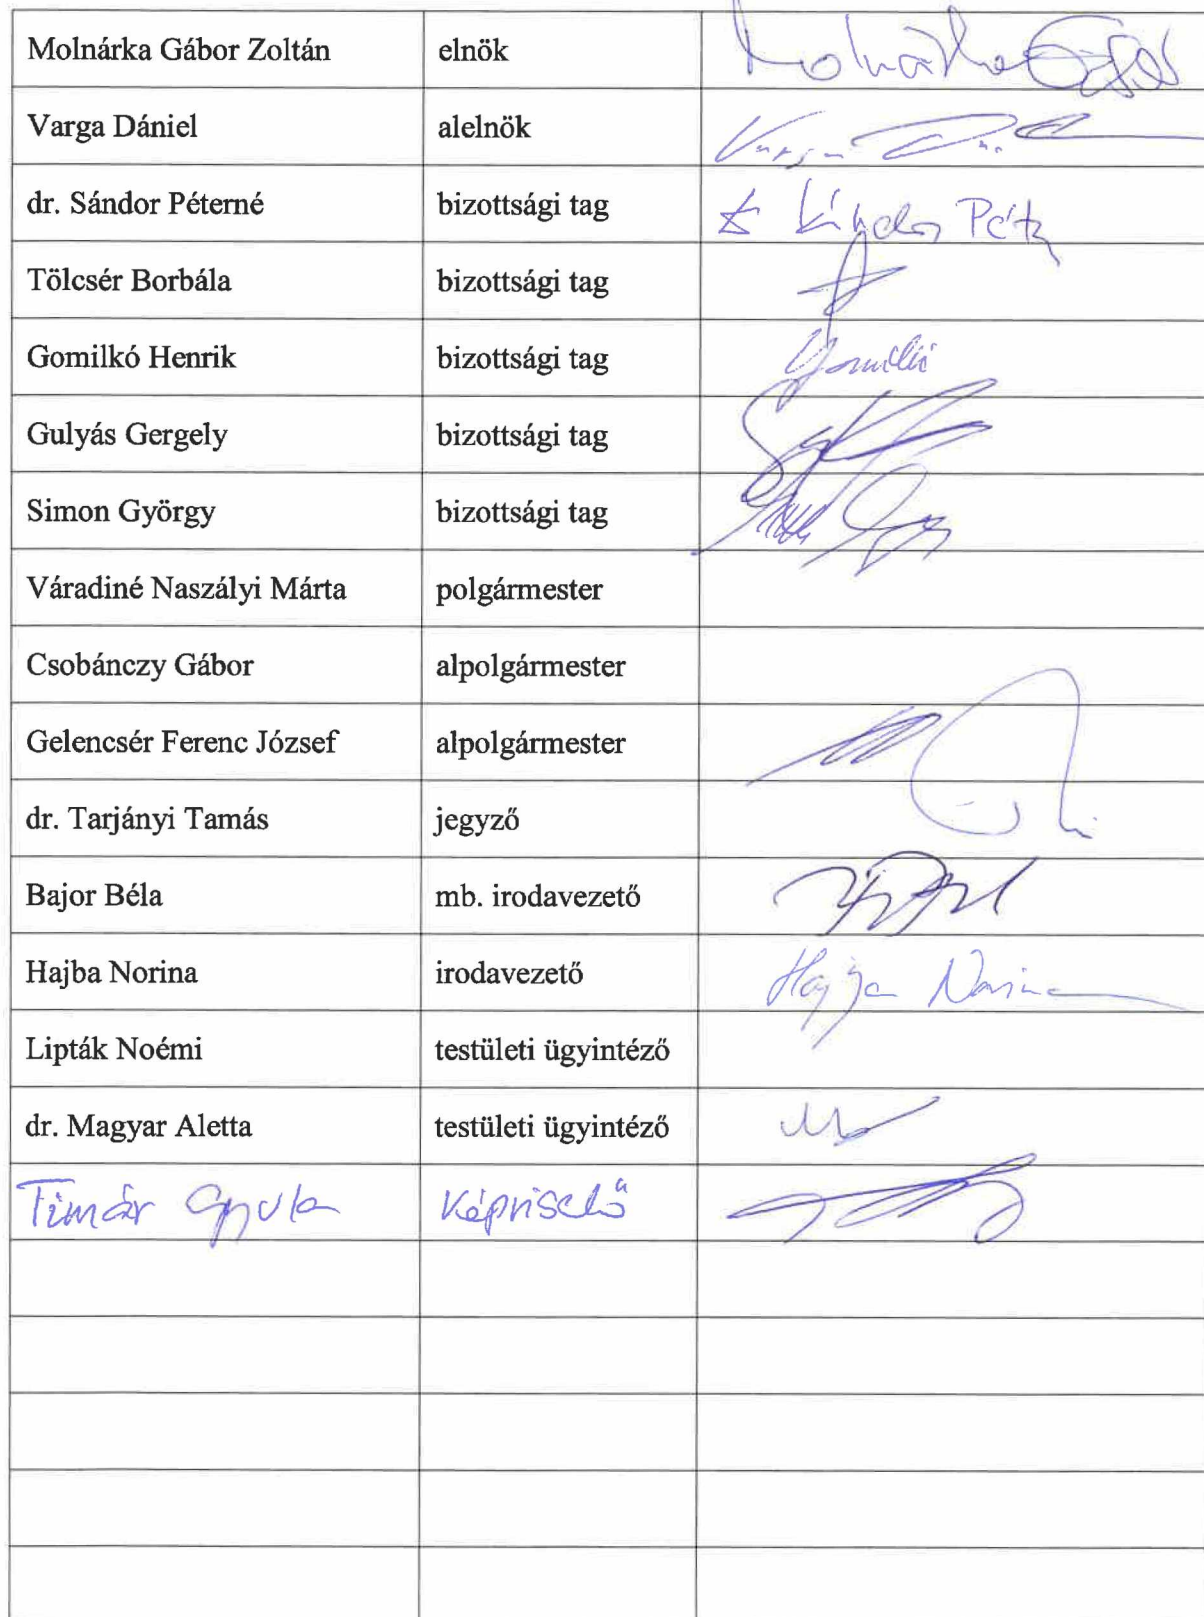 Molnárka Gábor Zoltán elnök Molnárka Gábor
Varga Dániel alelnök Varga
dr. Sándor Péterné bizottsági tag
Tölcsér Borbála bizottsági tag
Gomilkó Henrik bizottsági tag
Gulyás Gergely bizottsági tag
Simon György bizottsági tag
Váradiné Naszályi Márta polgármester
Csobánczy Gábor alpolgármester
Gelencsér Ferenc József alpolgármester
dr. Tarjányi Tamás jegyző
Bajor Béla mb. irodavezető
Hajba Norina irodavezető Hajba Norina
Lipták Noémi testületi ügyintéző
dr. Magyar Aletta testületi ügyintéző
Timár Gyula Képviselő